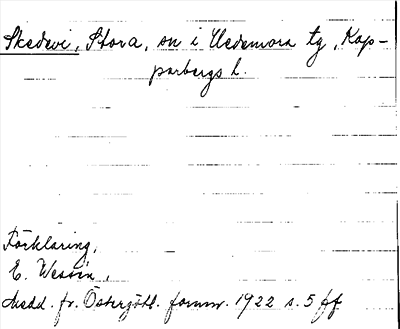 Skedevi, Stora, sn i Hedemora tg, Kop-
parbergs l.
Förklaring,
E. Wessén,
Medd. fr. Östergötl. fornm. 1922 s. 5 ff